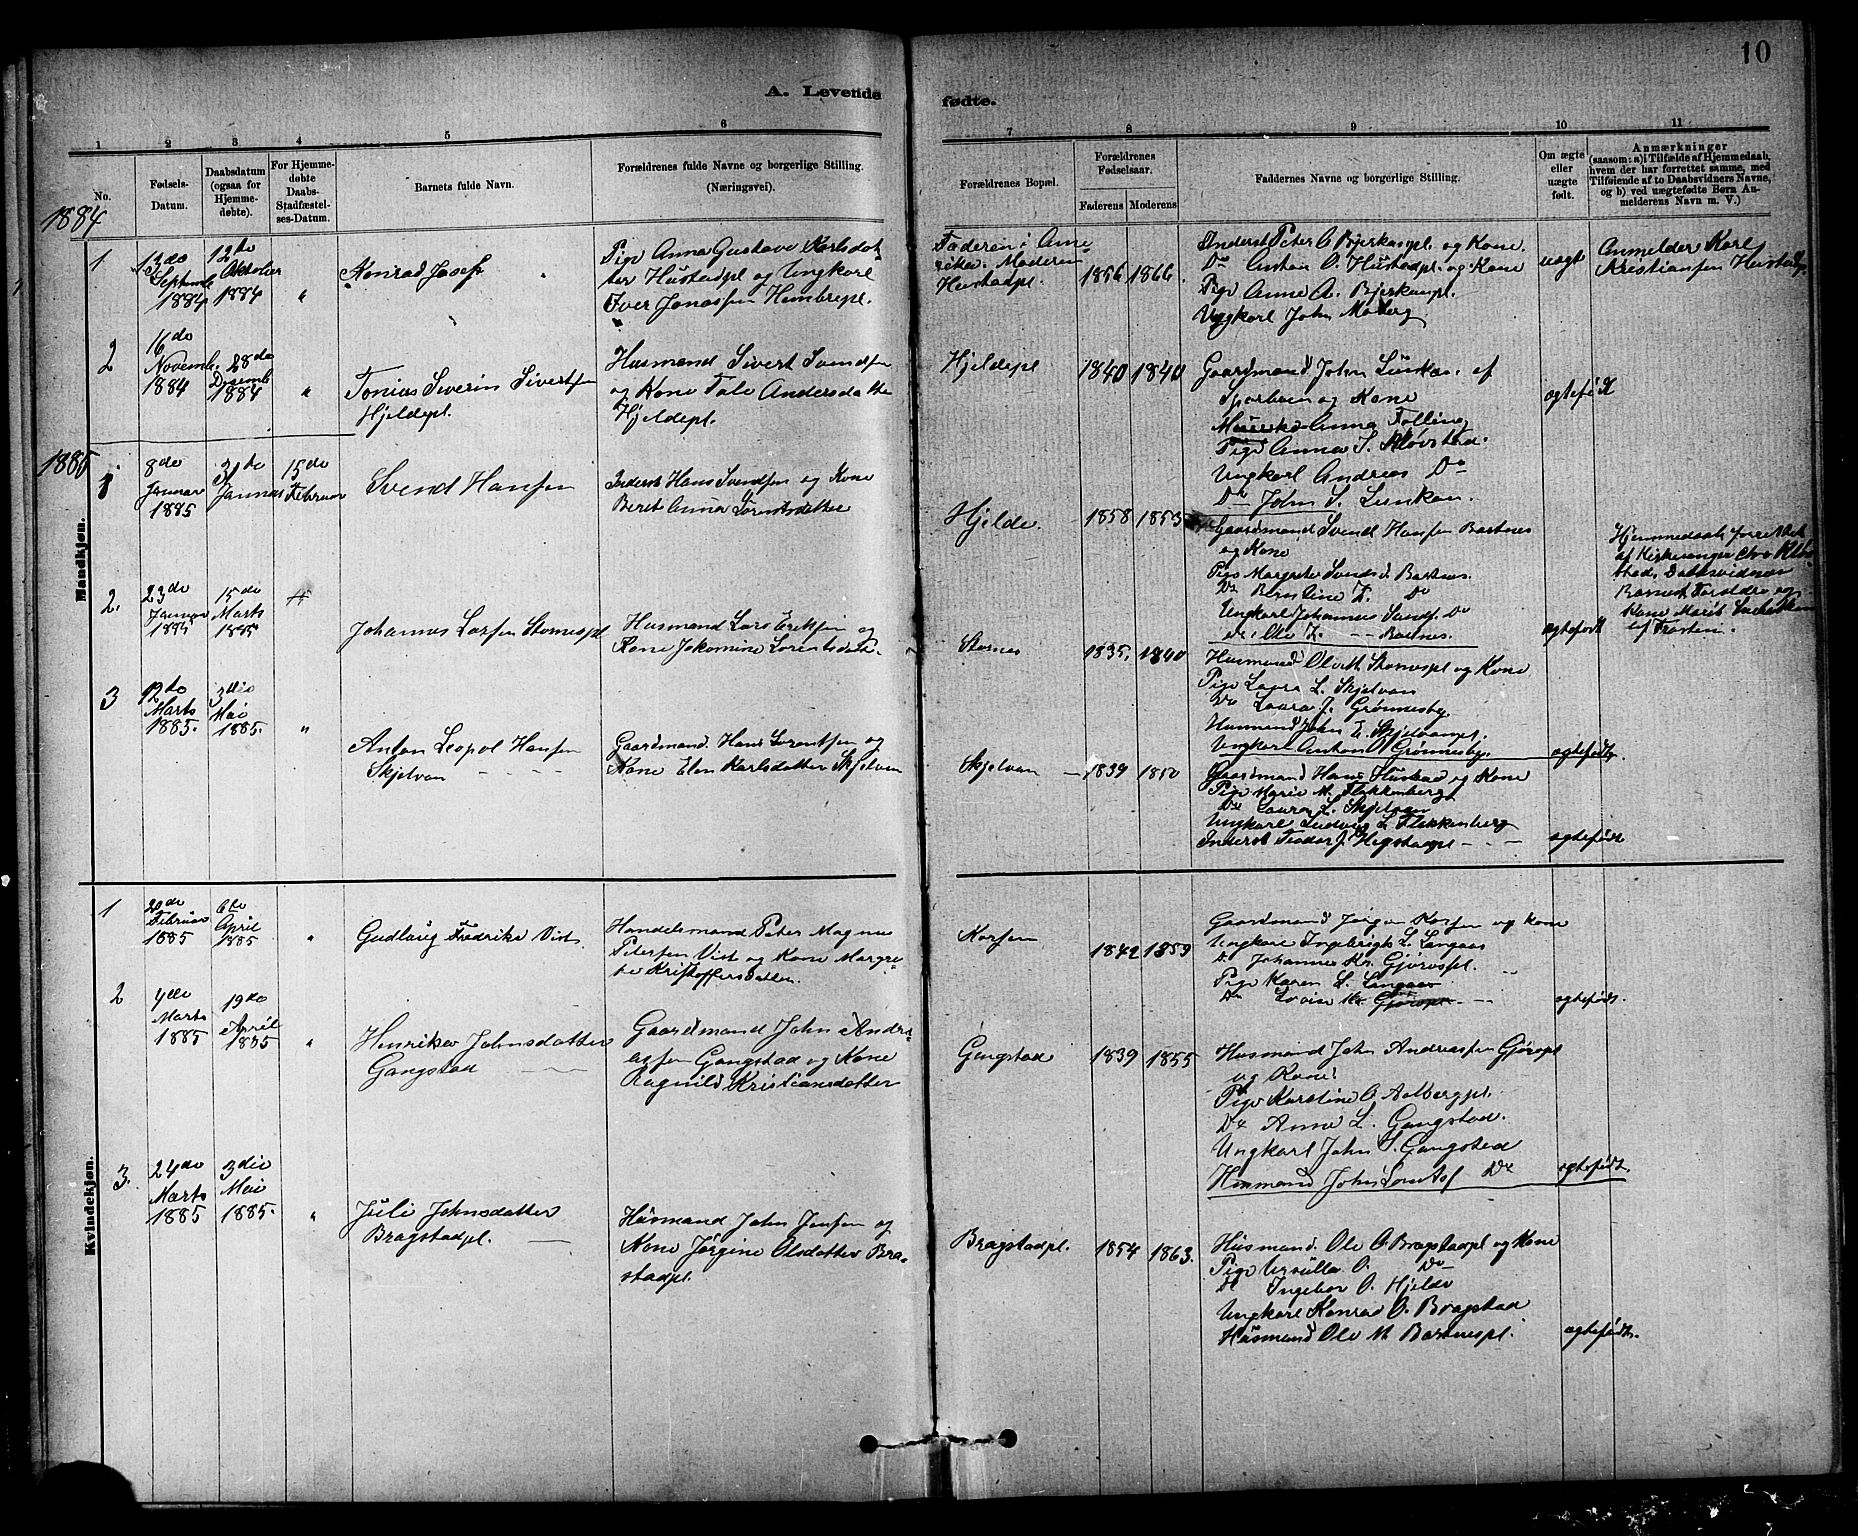 10
A. Levende
fødte.
1 2 3 4 5 6
7 8 9 10 11
No.
Fødsels-Datum.
Daabsdatum (ogsaa for Hjemme-døbte).
For Hjemme-døbte Daabs-Stadfæstel-ses-Datum.
Barnets fulde Navn.
Forældrenes fulde Navne og borgerlige Stilling.
(Næringsvei).
Forældrenes Bopæl.
Forældrenes Fødselsaar.
Faderens Moderens
Faddernes Navne og borgerlige Stilling.
Om ægte eller uægte født.
Anmærkninger
(saasom: a) i Tilfælde af Hjemmedaab,
hvem der har forrettet samme, med
Tilføiende af to Daabsvidners Navne,
og b) ved uægtefødte Børn An-
melderens Navn m. V.)
1884
Mandkjøn.
1
13do Septemb 1884
12te Oktober 1884
"
Konrad Josef
Pige Anna Gustava Karlsdat-
ter Hustadpl og Ungkarl
Iver Jonassen Hembrepl.
Faderen i Ame-
rika. Moderen
Hustadpl.
1856 1866.
Inderst Peter O Bjerkaspl og Kone.
Do Anton O. Hustadpl. og Kone
Pige Anne A. Bjerkaspl.
Ungkarl John Moberg
uægt
Anmelder Karl
Kristiansen Hustadpl
2
16do Novemb. 1884
28do Desemb 1884
"
Tonias Severin Sivertsen
Hjeldepl.
Husmand Sivert Svendsen
og Kone Tale Andersdatter
Hjeldepl.
Hjeldepl
1840 1840
Gaardmand John Lunkan af
Sparbuen og Kone
Anna Følling
Pige Anna S. Kløvstad.
Ungkarl Andreas Do
Do John S. Lunkan.
ægtefød
1885
1
8de Januar 1885
31te Januar
15do Februar
Svend Hansen
Inderst Hans Svendsen og Kone
Beret Anna Lorentsdatter
Hjelde.
1858 1853
Gaardmand Svend Hansen Bartnes
og Kone
Pige Margrete Svends d. Bartnes.
Do Berntine F. Do
Ungkarl Johannes Svends. Do
do: Ole F. -- Bartnes.
ægtefødt
Hjemmedaab forrettet
af Kirkesanger Kløv-
stad. Daabsvidner
Barnets Forældre og
Kone Marit
af Frosten.
2.
23do Januar 1885
15do Marts 1885
Johannes Larsen Stornespl
Husmand Lars Eriksen og
Kone Jokomine Lorentsdatt.
Stornes
1835, 1840
Husmand Olaus Stornespl og Kone
Pige Laura L. Skjelvan
Do Laura J. Grønnesby.
Husmand John E. Skjelvanpl.
Ungkarl Anton Grønnesby.
ægtefødt.
3
12do Marts 1885.
3die Mai 1885.
"
Anton Leopol Hansen
Skjelvan
Gaardmand. Hans Lorentsen og
Kone Elen Karlsdatter Skjelvan
Skjelvan
1839 1850
Gaardmand Hans Hustad og Kone
Pige Marie M. Flekkenberg
Do Laura L. Skjelvan
Ungkarl Ludvig L. Flekkenberg
Inderst Teodor J. Hegstadpl
ægtefødt
Kvindekjøn.
1
20de Februar 1885
6te April 1885
"
Gudlaug Fredrike Vist
Handelsmand Peter Magnus
Petersen Vist og Kone Margre-
te Kristoffersdatter.
Korsen
1842 1859
Gaardmand Jørgen Korsen og Kone
Ungkarl Ingebrigt L. Langaas
Do Johannes Kr. Gjørvspl.
Pige Karen L. Langaas
Do Lovise Kr. Gjørvpl
ægtefødt.
2
7de Marts 1885
19do April 1885
"
Henrika Johnsdatter
Gangstad
Gaardmand John Andre-
assen Gangstad og Kone
Ragnild Kristiansdatter
Gangstad
1839 1855
Husmand John Andreassen Gjørvpl
og Kone:
Pige Karstine O Aalbergpl.
Do Anne L. Gangstad.
Ungkarl John H. Gangstad
Husmand John Lorntsf Do
ægtefødt.
3.
24do Marts 1885
3die Mai 1885.
"
Juli Johnsdatter
Bragstadpl.
Husmand John Jensen og
Kone Jørgine Olsdatter Bra-
stadpl.
Bragstadpl.
1854 1863.
Husmand. Ole O. Bragstadpl og Kone
Pige Ursulla O. Do
Do Ingebor O. Hjelde
Ungkarl Konrad O. Bragstad
Husmand Ole M. Bartnespl.
ægtefødt.